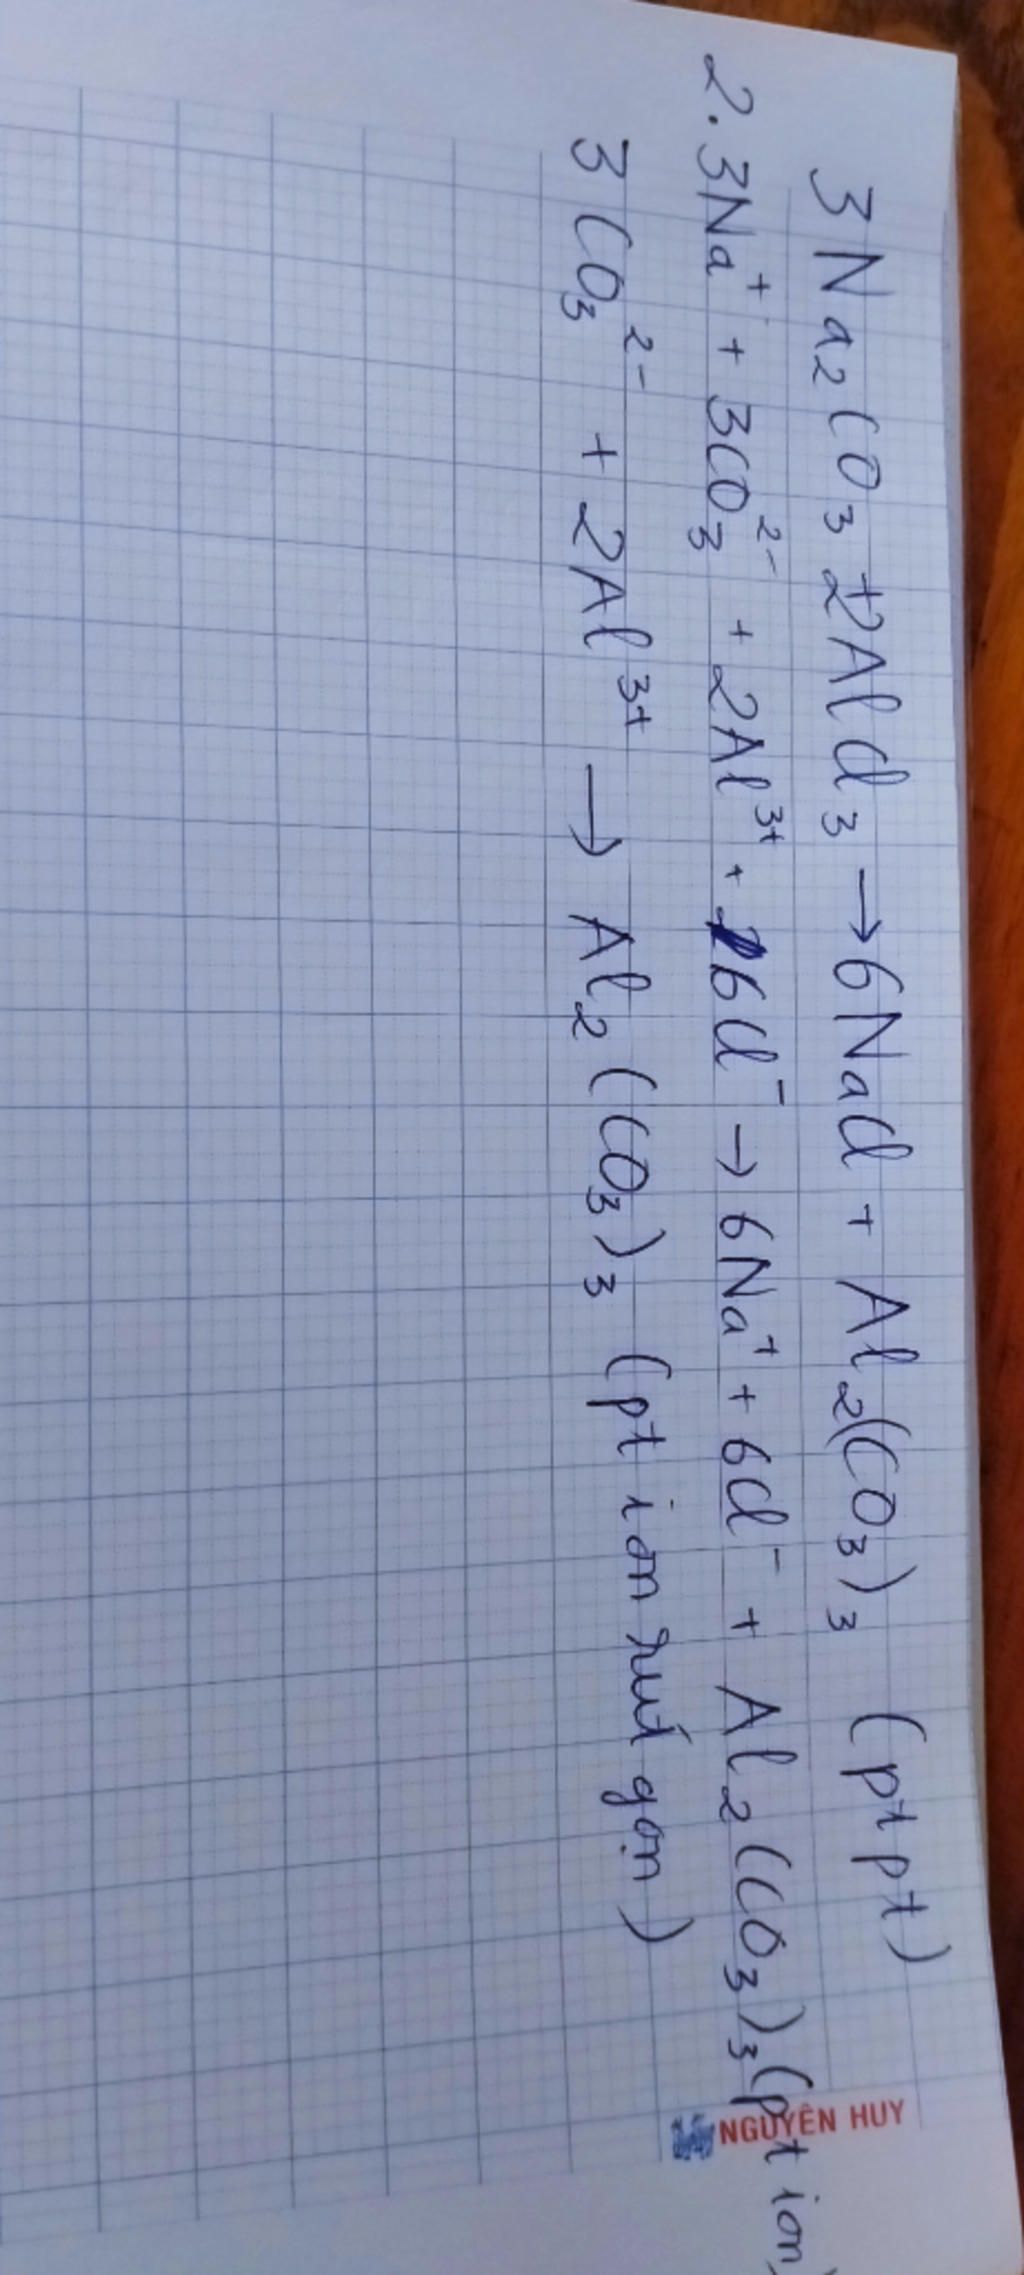 3Na₂CO₃ + 2AlCl₃ → 6NaCl + Al₂(CO₃)₃ (ptpt)
2.3Na⁺ + 3CO₃²⁻ + 2Al³⁺ + 6Cl⁻ → 6Na⁺ + 6Cl⁻ + Al₂(CO₃)₃ (pt ion)
3CO₃²⁻ + 2Al³⁺ → Al₂(CO₃)₃ (pt ion rút gọn)
NGUYÊN HUY